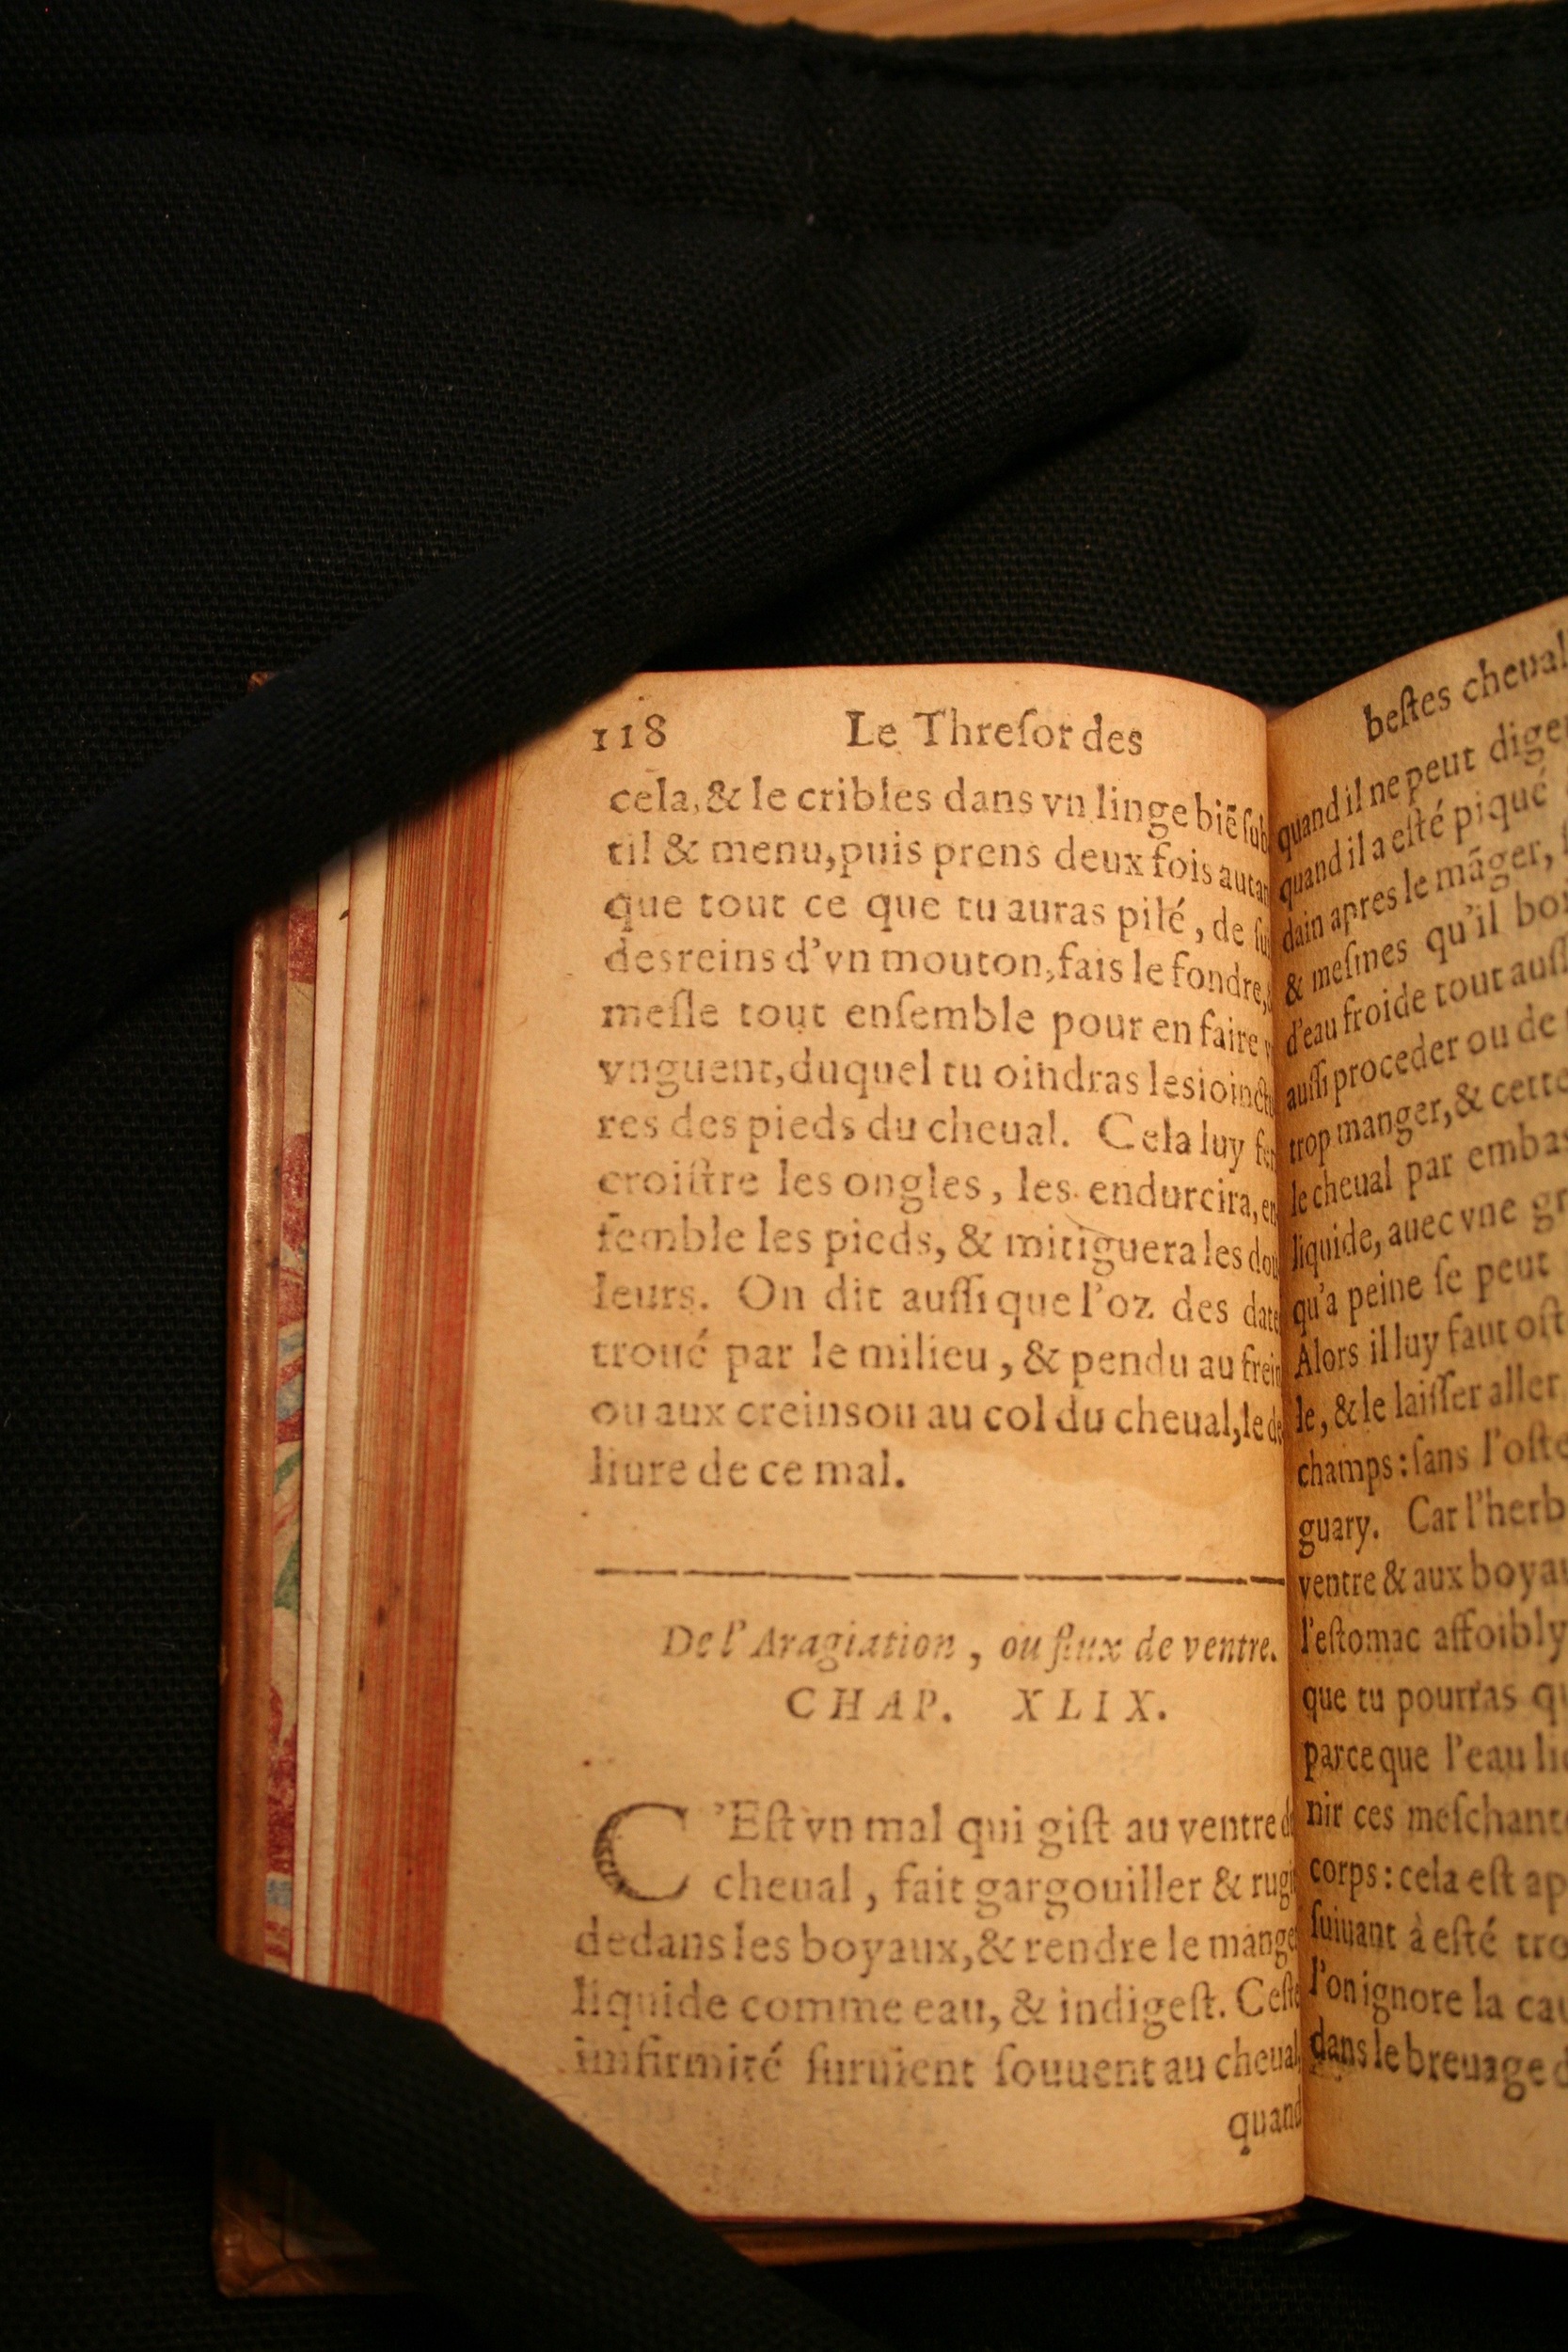 118 Le Threſor des
cela, & le cribles dans vn linge biẽ ſub
til & menu, puis prens deux fois autan
que tout ce que tu auras pilé, de ſu
des reins d'vn mouton, fais le fondre,
meſle tout enſemble pour en faire v
vnguent, duquel tu oindras les ioinctu
res des pieds du cheual. Cela luy fer
croiſtre les ongles, les endurcira, en
ſemble les pieds, & mitiguera les dou
leurs. On dit auſſi que l'oz des date
troué par le milieu, & pendu au frein
ou aux creins ou au col du cheual, le de
liure de ce mal.
De l'Aragiation, ou flux de ventre.
CHAP. XLIX.
C'Eſt vn mal qui giſt au ventre du
cheual, fait gargouiller & rugi
dedans les boyaux, & rendre le mange
liquide comme eau, & indigeſt. Ceſte
infirmité ſuruient ſouuent au cheual
quand
beſtes cheual
quand il ne peut diger
quand il a eſté piqué
dain apres le mãger,
& meſmes qu'il boi
d'eau froide tout auſſ
auſſi proceder ou de
trop manger, & cette
le cheual par embas
liquide, auec vne gr
qu'a peine ſe peut
Alors il luy faut oſt
le, & le laiſſer aller
champs: ſans l'oſte
guary. Car l'herb
ventre & aux boyau
l'eſtomac affoibly
que tu pourras qu
parce que l'eau li
nir ces meſchante
corps: cela eſt ap
ſuiuant à eſté tro
l'on ignore la cau
dans le breuage d